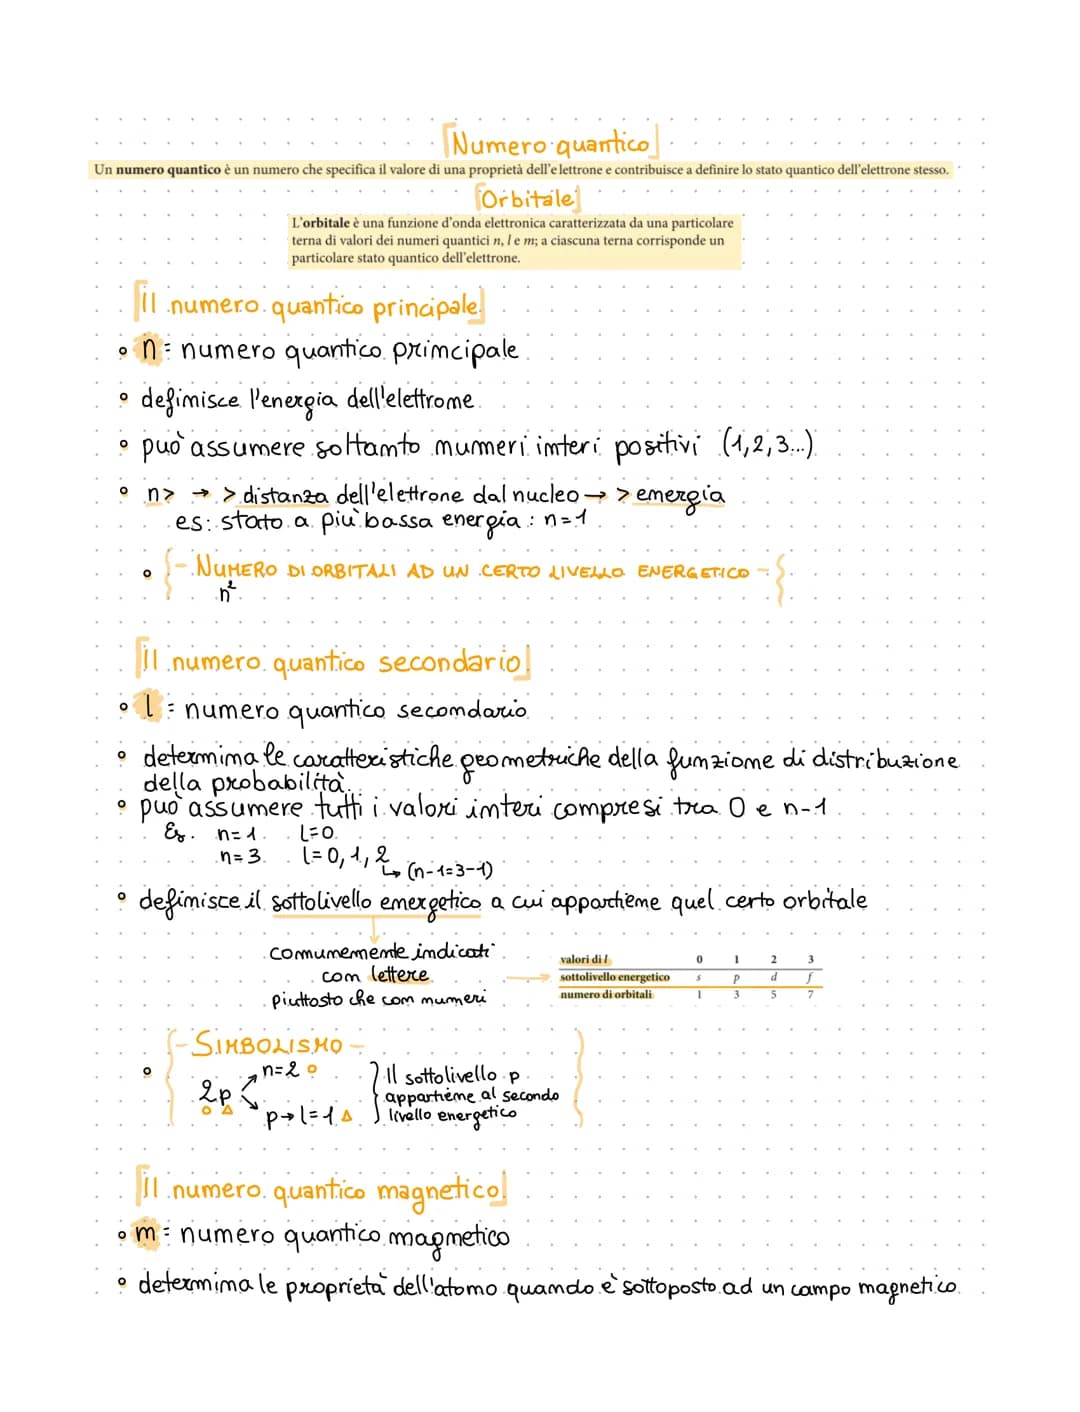 Numero quantico
Un numero quantico è un numero che specifica il valore di una proprietà dell'elettrone e contribuisce a definire lo stato quantico dell'elettrone stesso.
Orbitale
L'orbitale è una funzione d'onda elettronica caratterizzata da una particolare
terna di valori dei numeri quantici n, l e m; a ciascuna terna corrisponde un
particolare stato quantico dell'elettrone.
Il numero quantico principale
n = numero quantico principale
definisce l'energia dell'elettrone
può assumere soltanto numeri interi positivi (1,2,3...)
n> → > distanza dell'elettrone dal nucleo → > energia
es: stato a più bassa energia : n=1
- NUMERO DI ORBITALI AD UN CERTO LIVELLO ENERGETICO -
n²
Il numero quantico secondario
l = numero quantico secondario
determina le caratteristiche geometriche della funzione di distribuzione
della probabilità
può assumere tutti i valori interi compresi tra 0 e n-1
Es. n=1 l=0
n=3 l=0,1,2
↳ (n-1=3-1)
definisce il sottolivello energetico a cui appartiene quel certo orbitale
comunemente indicati
con lettere
piuttosto che con numeri
valori di l 0 1 2 3
sottolivello energetico s p d f
numero di orbitali 1 3 5 7
- SIMBOLISMO -
2p
n=2
p→l=1
Il sottolivello p
appartiene al secondo
livello energetico
Il numero quantico magnetico
m = numero quantico magnetico
determina le proprietà dell'atomo quando è sottoposto ad un campo magnetico.